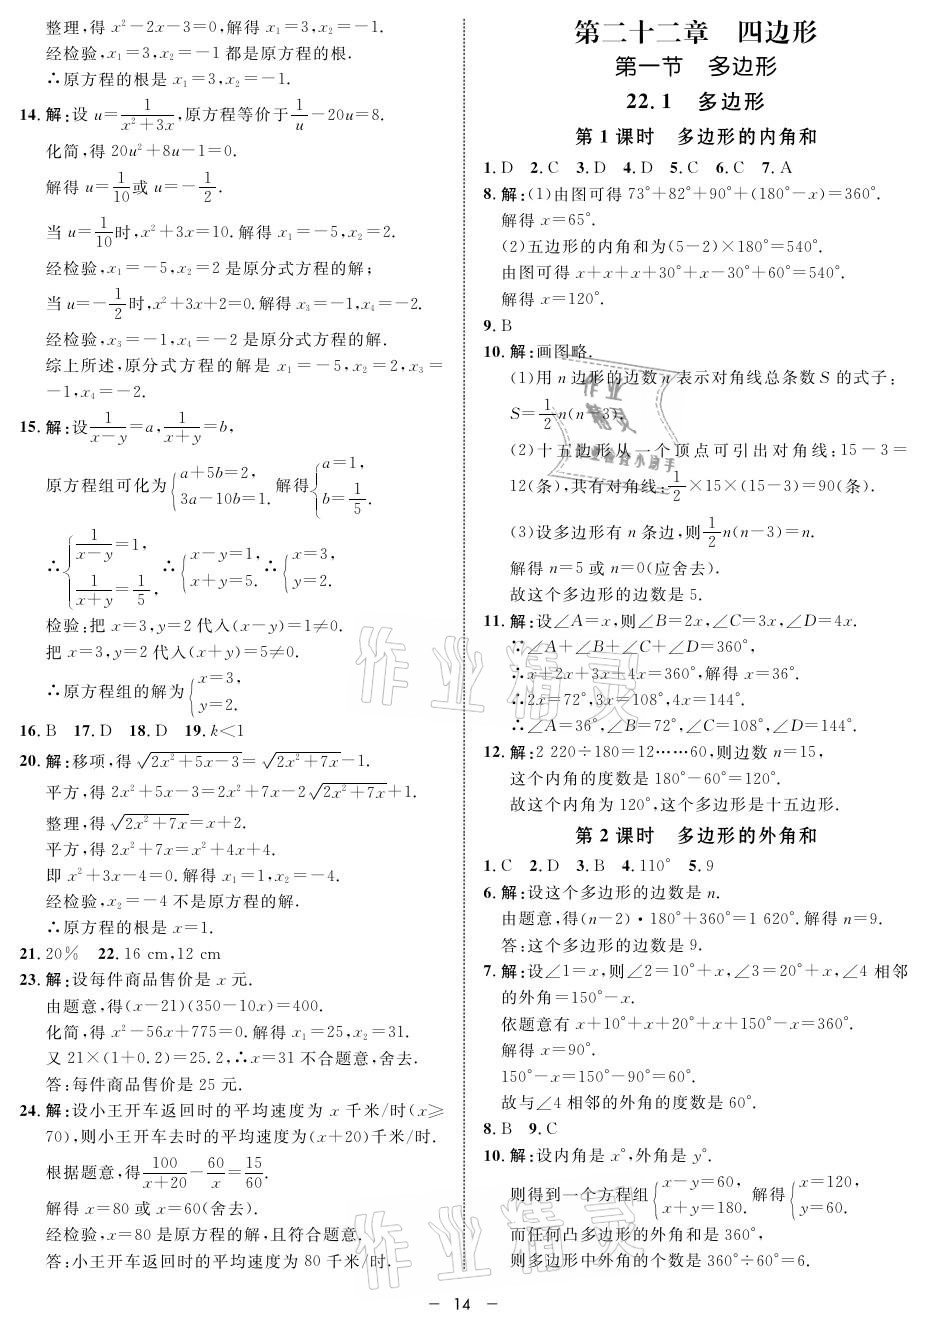 整理,得 x²－2x－3＝0,解得 x₁＝3,x₂＝－1.
经检验,x₁＝3,x₂＝－1 都是原方程的根.
∴原方程的根是 x₁＝3,x₂＝－1.
14. 解:设 u＝1/(x²＋3x),原方程等价于1/u－20u＝8.
化简,得 20u²＋8u－1＝0.
解得 u＝1/10或 u＝－1/2.
当 u＝1/10时,x²＋3x＝10. 解得 x₁＝－5,x₂＝2.
经检验,x₁＝－5,x₂＝2 是原分式方程的解;
当 u＝－1/2时,x²＋3x＋2＝0. 解得 x₃＝－1,x₄＝－2.
经检验,x₃＝－1,x₄＝－2 是原分式方程的解.
综上所述,原分式方程的解是 x₁＝－5,x₂＝2,x₃＝
－1,x₄＝－2.
15. 解:设1/(x－y)＝a,1/(x＋y)＝b,
原方程组可化为{a＋5b＝2, 3a－10b＝1. 解得{a＝1, b＝1/5.
∴{1/(x－y)＝1, 1/(x＋y)＝1/5, ∴{x－y＝1, x＋y＝5. ∴{x＝3, y＝2.
检验:把 x＝3,y＝2 代入(x－y)＝1≠0.
把 x＝3,y＝2 代入(x＋y)＝5≠0.
∴原方程组的解为{x＝3, y＝2.
16. B 17. D 18. D 19. k＜1
20. 解:移项,得 √(2x²＋5x－3)＝√(2x²＋7x)－1.
平方,得 2x²＋5x－3＝2x²＋7x－2√(2x²＋7x)＋1.
整理,得 √(2x²＋7x)＝x＋2.
平方,得 2x²＋7x＝x²＋4x＋4.
即 x²＋3x－4＝0. 解得 x₁＝1,x₂＝－4.
经检验,x₂＝－4 不是原方程的解.
∴原方程的根是 x＝1.
21. 20% 22. 16 cm,12 cm
23. 解:设每件商品售价是 x 元.
由题意,得(x－21)(350－10x)＝400.
化简,得 x²－56x＋775＝0. 解得 x₁＝25,x₂＝31.
又 21×(1＋0.2)＝25.2,∴x＝31 不合题意,舍去.
答:每件商品售价是 25 元.
24. 解:设小王开车返回时的平均速度为 x 千米/时(x⩾
70),则小王开车去时的平均速度为(x＋20)千米/时.
根据题意,得100/(x＋20)－60/x＝15/60.
解得 x＝80 或 x＝60(舍去).
经检验,x＝80 是原方程的解,且符合题意.
答:小王开车返回时的平均速度为 80 千米/时.
第二十二章 四边形
第一节 多边形
22.1 多边形
第 1 课时 多边形的内角和
1. D 2. C 3. D 4. D 5. C 6. C 7. A
8. 解:(1)由图可得 73°＋82°＋90°＋(180°－x)＝360°.
解得 x＝65°.
(2)五边形的内角和为(5－2)×180°＝540°.
由图可得 x＋x＋x＋30°＋x－30°＋60°＝540°.
解得 x＝120°.
9. B
10. 解:画图略.
(1)用 n 边形的边数 n 表示对角线总条数 S 的式子:
S＝1/2n(n－3).
(2)十五边形从一个顶点可引出对角线:15－3＝
12(条),共有对角线:1/2×15×(15－3)＝90(条).
(3)设多边形有 n 条边,则1/2n(n－3)＝n.
解得 n＝5 或 n＝0(应舍去).
故这个多边形的边数是 5.
11. 解:设∠A＝x,则∠B＝2x,∠C＝3x,∠D＝4x.
∵∠A＋∠B＋∠C＋∠D＝360°,
∴x＋2x＋3x＋4x＝360°,解得 x＝36°.
∴2x＝72°,3x＝108°,4x＝144°.
∴∠A＝36°,∠B＝72°,∠C＝108°,∠D＝144°.
12. 解:2 220÷180＝12……60,则边数 n＝15,
这个内角的度数是 180°－60°＝120°.
故这个内角为 120°,这个多边形是十五边形.
第 2 课时 多边形的外角和
1. C 2. D 3. B 4. 110° 5. 9
6. 解:设这个多边形的边数是 n.
由题意,得(n－2)·180°＋360°＝1 620°. 解得 n＝9.
答:这个多边形的边数是 9.
7. 解:设∠1＝x,则∠2＝10°＋x,∠3＝20°＋x,∠4 相邻
的外角＝150°－x.
依题意有 x＋10°＋x＋20°＋x＋150°－x＝360°.
解得 x＝90°.
150°－x＝150°－90°＝60°.
故与∠4 相邻的外角的度数是 60°.
8. B 9. C
10. 解:设内角是 x°,外角是 y°.
则得到一个方程组{x－y＝60, x＋y＝180. 解得{x＝120, y＝60.
而任何凸多边形的外角和是 360°,
则多边形中外角的个数是 360°÷60°＝6.
－ 14 －
作业精灵
作业精灵
作业
精灵